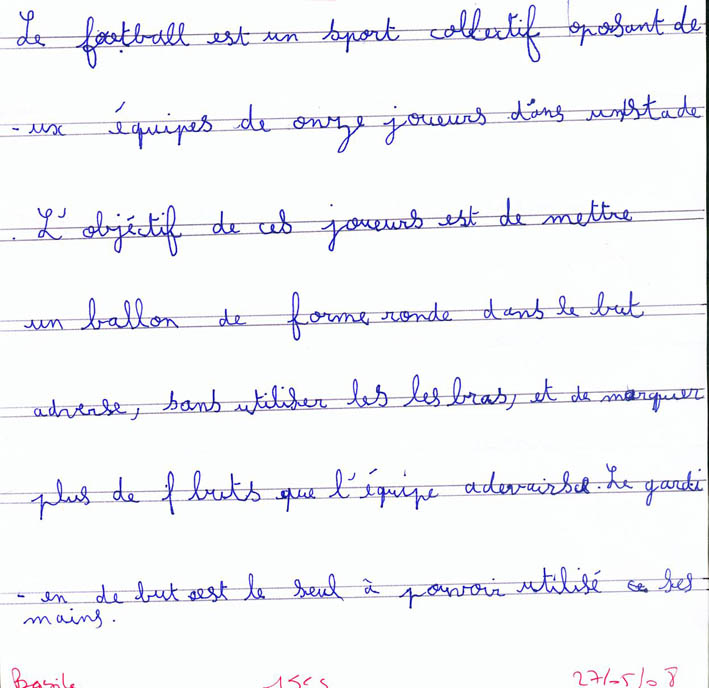 Le football est un sport collectif oposant de
-ux équipes de onze joueurs dans un stade
. L'objéctif de ces joueurs est de mettre
un ballon de forme ronde dans le but
adverse, sans utiliser les les bras, et de marquer
plus de f buts que l'équipe adevairse. Le gardi
- en de but est le seul à pouvoir utilisé ses
mains.
Basile 27/05/08